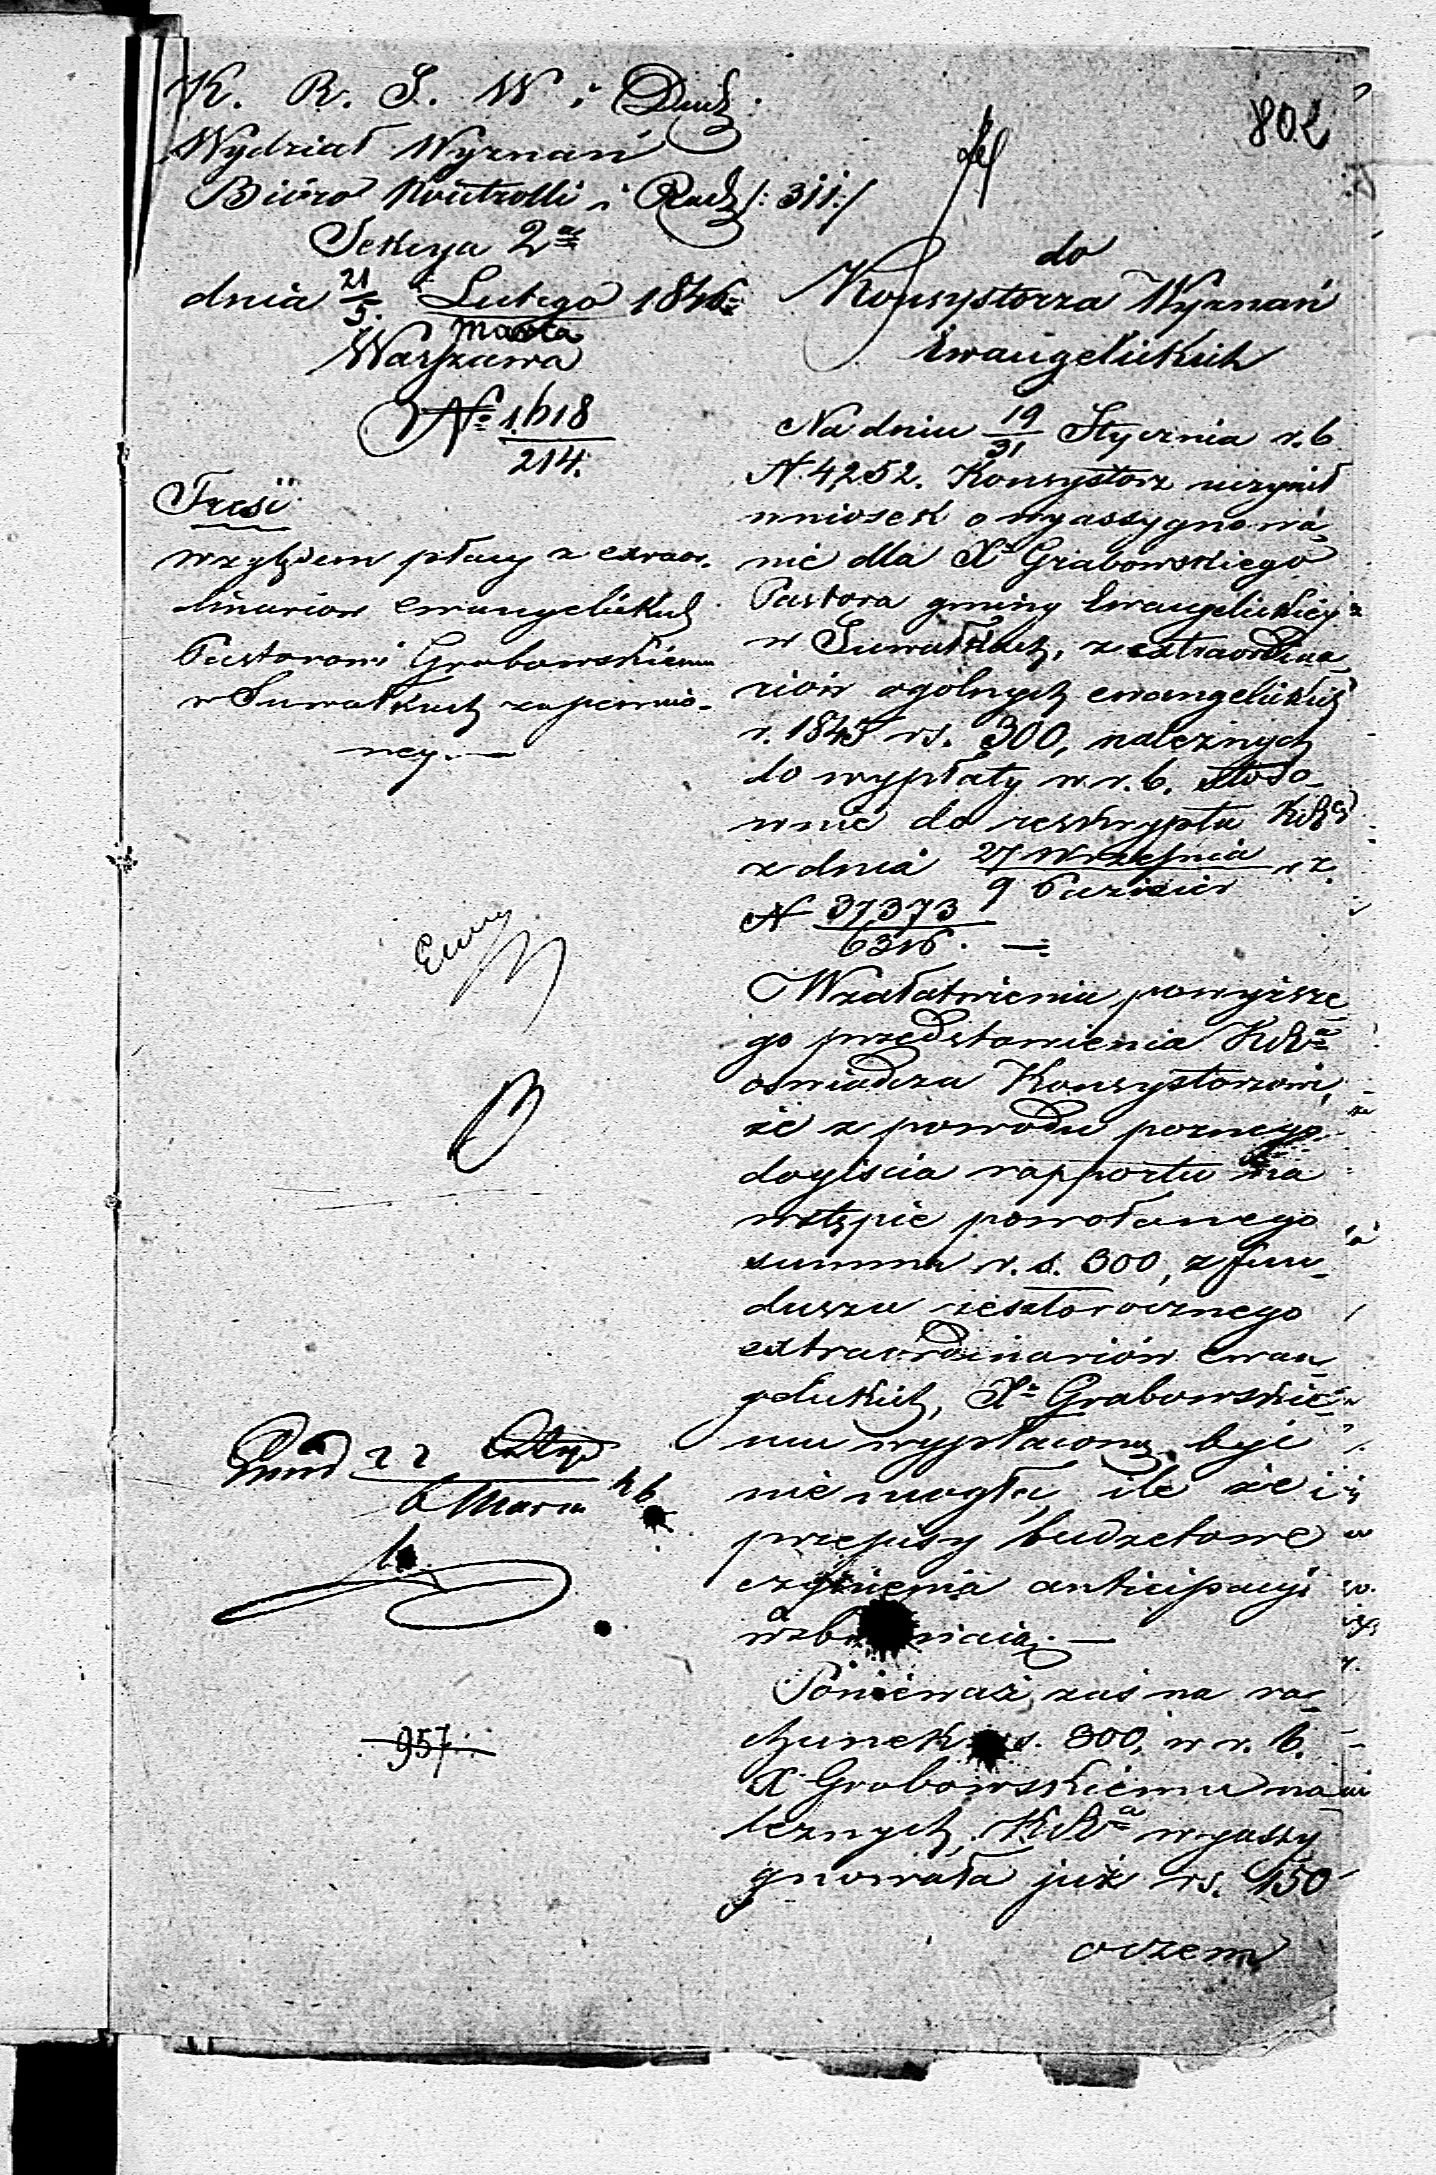 802
K. R. S. W. i Duch.
Wydział Wyznań
Biuro Kontrolli i Rach /: 3ii :/
Sekcya 2ga
dnia 21/5 Lutego/Marca 1846
Warszawa
No 1618/214.
Treść
względem płacy z extraor-
dinariów ewangelickich
Pastorowi Grabowskiemu
w Suwałkach zapewnio-
nej. —
957
do
Konsystorza Wyznań
Ewangelickich
Na dniu 19/31 Stycznia r. b.
N. 4252. Konsystorz uczynił
wniosek o wyassygnowa-
nie dla Xa Grabowskiego
Pastora gminy Ewangelickiej
w Suwałkach, z extraordina-
riów ogólnych ewangelickich
r. 1845 rs. 300, należnych
do wypłaty w r. b. stoso-
wnie do reskryptu KRz
z dnia 27 Września/9 Paździer r. z.
N 37373/6316. —
W załatwieniu powyższe-
go przedstawienia KRa
oświadcza Konsystorzowi,
że z powodu poznego
dojścia rapportu na
wstępie powołanego
summa r. s. 300, z fun-
duszu zeszłorocznego
extraordinariów ewan-
gelickich, Xu Grabowskie-
mu wypłaconą być
nie mogła, ile że i
przepisy budżetowe
czynienia anticipacyi
wzbraniają. —
Ponieważ zaś na ra-
chunek rs. 300, w r. b.
X. Grabowskiemu na-
leżnych, KRa wyassy-
gnowała już rs. 150
oczem